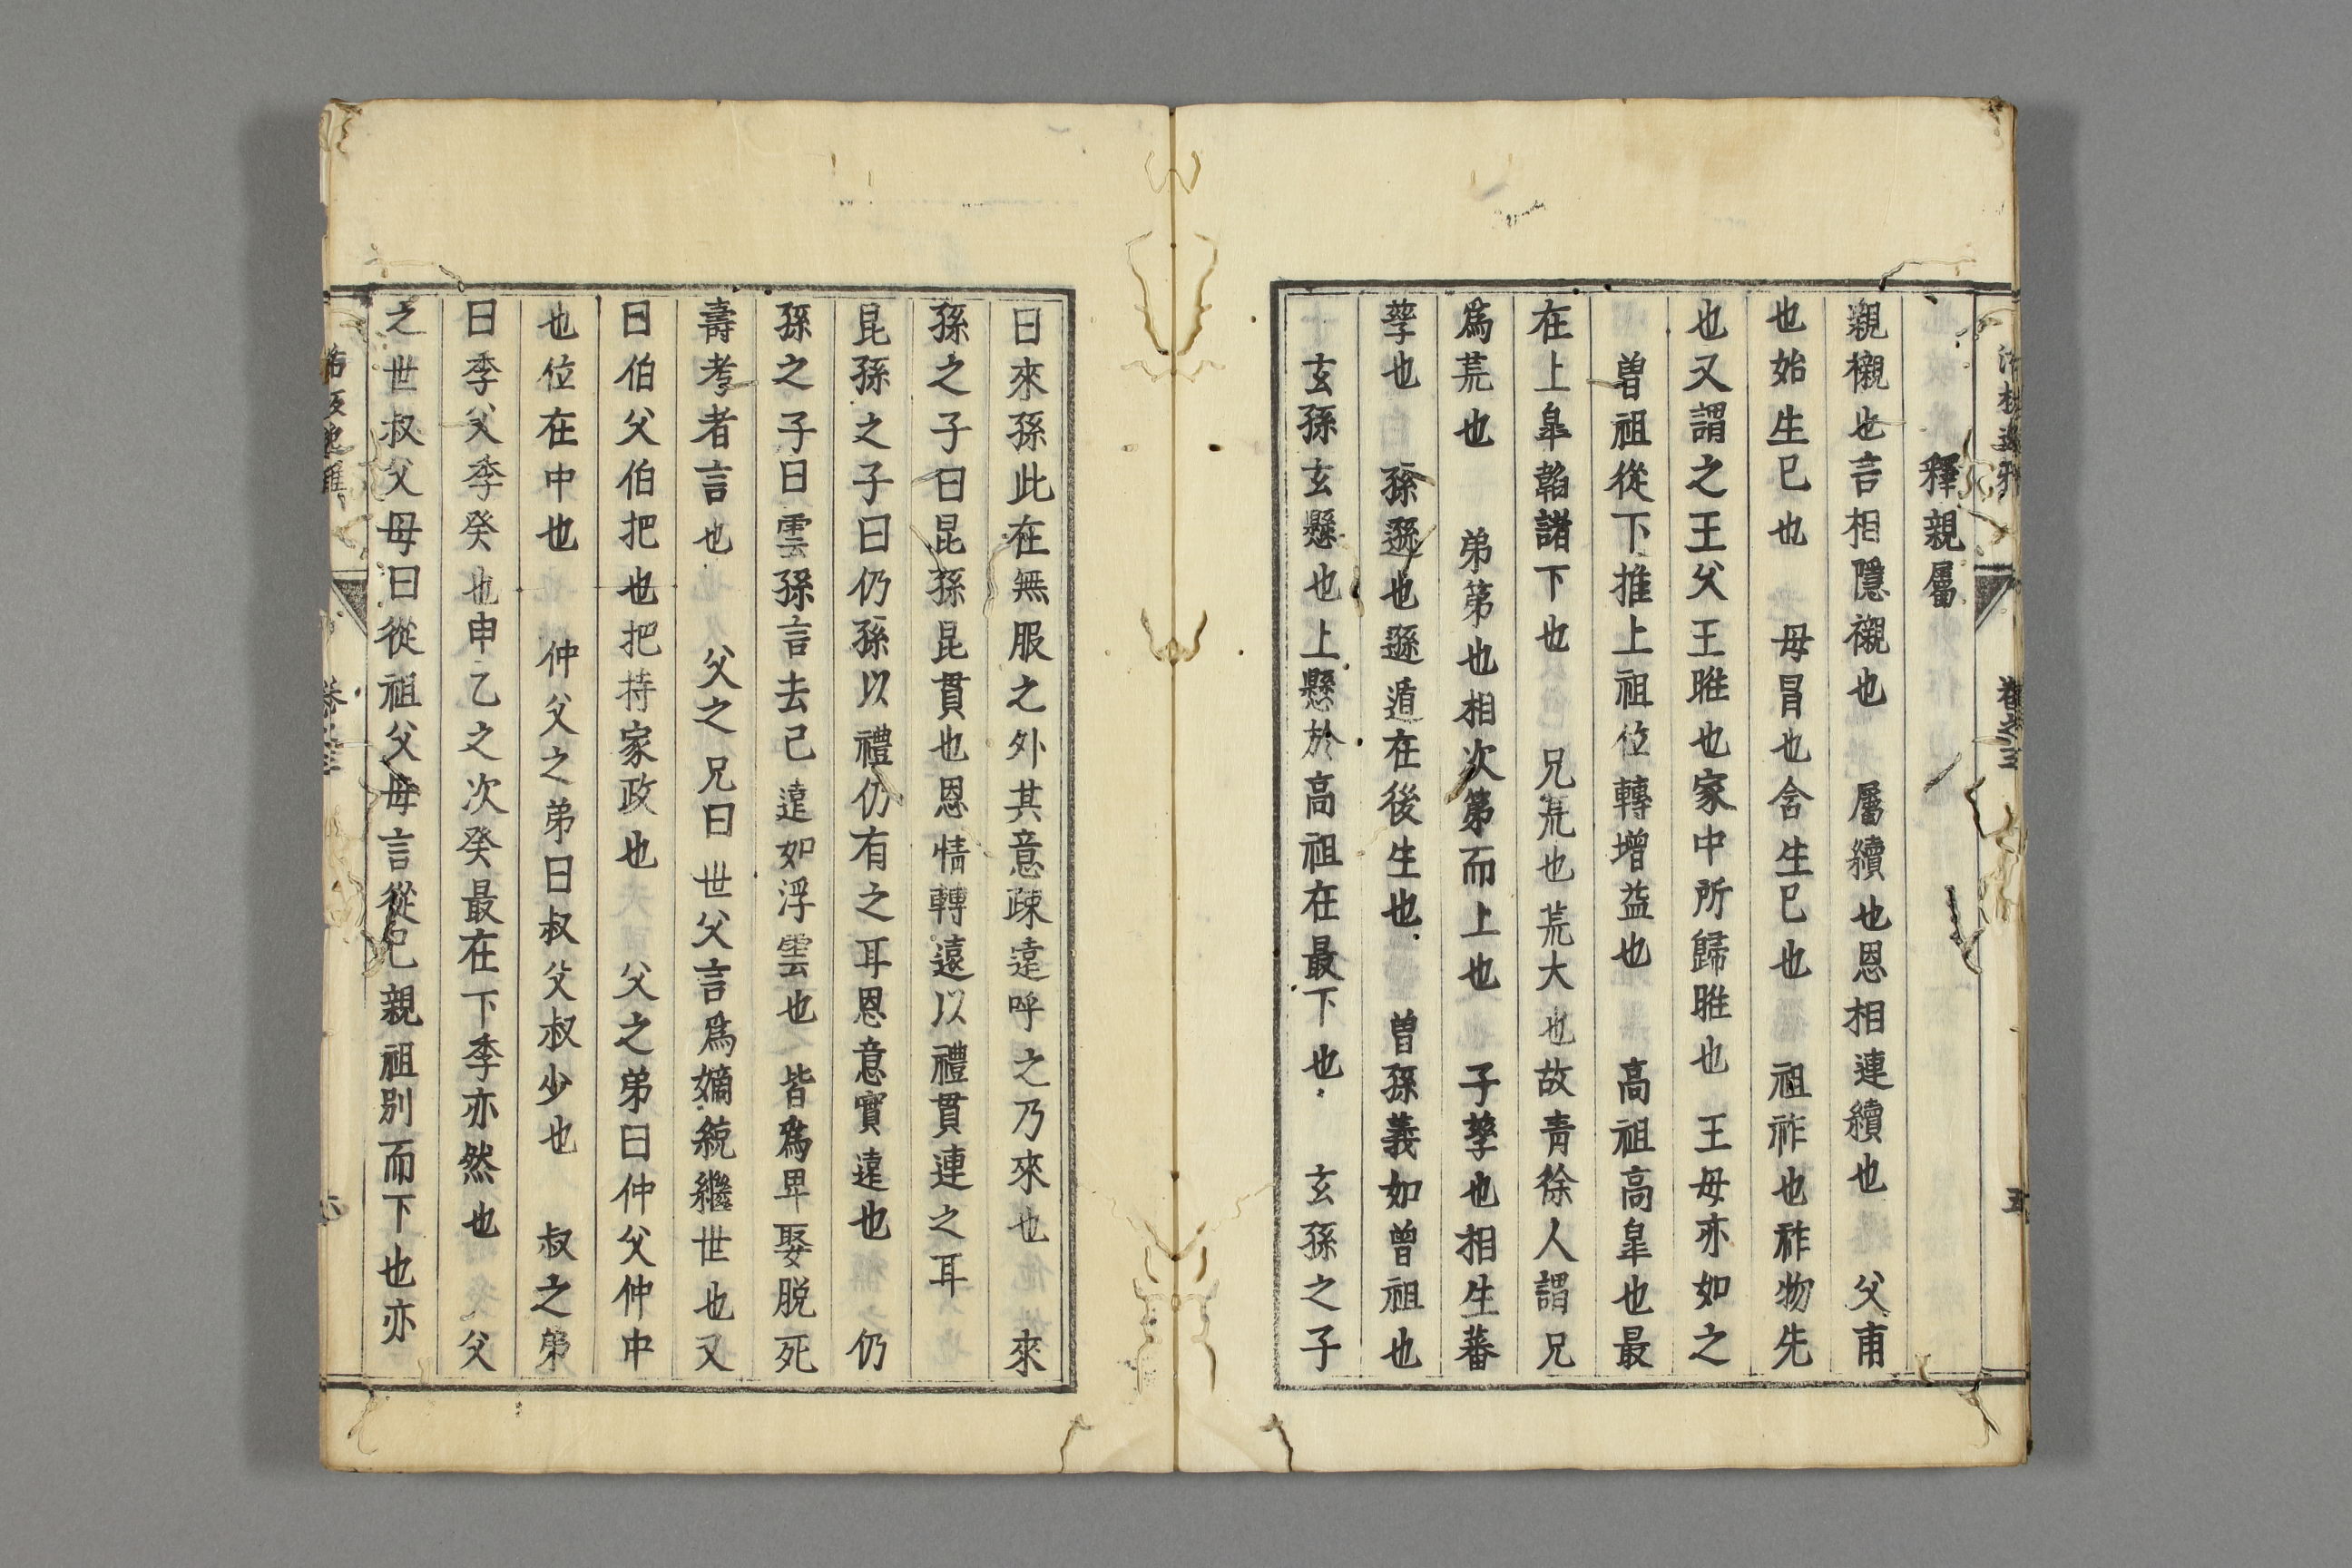 釋親屬
親櫬也言相隱襯也　屬續也恩相連續也　父甫
也始生巳也　母冒也含生巳也　祖祚也祚物先
也又謂之王父王暀也家中所歸暀也　王母亦如之
曽祖從下推上祖位轉增益也　高祖高皐也最
在上皐韜諸下也　兄荒也荒大也故青徐人謂兄
爲荒也　弟第也相次第而上也　子孳也相生蕃
孳也　孫遜也遜遁在後生也　曽孫義如曽祖也
玄孫玄懸也上懸於高祖在最下也　玄孫之子
曰來孫此在無服之外其意疎遠呼之乃來也　來
孫之子曰昆孫昆貫也恩情轉遠以禮貫連之耳
昆孫之子曰仍孫以禮仍有之耳恩意實遠也　仍
孫之子曰雲孫言去己遠如浮雲也　皆爲早娶脱死
壽考者言也　父之兄曰世父言爲嫡統繼世也又
曰伯父伯把也把持家政也　父之弟曰仲父仲中
也位在中也　仲父之弟曰叔父叔少也　叔之弟
曰季父季癸也申乙之次癸最在下季亦然也　父
之世叔父母曰從祖父母言從己親祖別而下也亦
卷之三
五